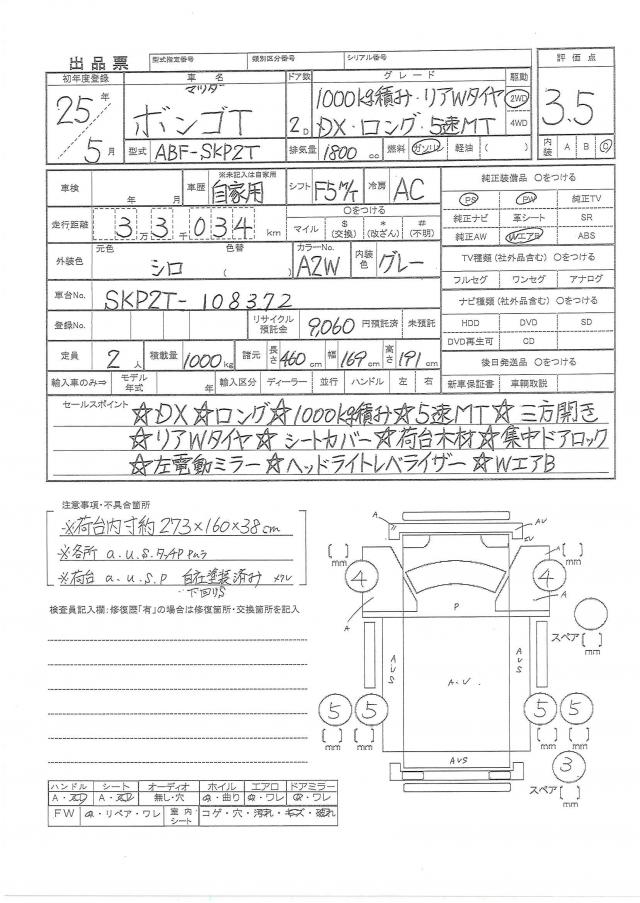 出品票 型式指定番号 類別区分番号 シリアル番号
初年度登録 車名 ドア数 グレード 駆動 評価点
25年 マツダ 1000kg積み・リアWタイヤ 2WD
ボンゴT 2D DX・ロング・5速MT 4WD 3.5
5月 型式 ABF-SKP2T 排気量 1800cc 燃料 ガソリン 軽油 ( ) 内装 A B C
車検 年 月 車歴 ※未記入は自家用 自家用 シフト F5M/T 冷房 AC 純正装備品 〇をつける
PS PW 純正TV
走行距離 3万3千034km 〇をつける 純正ナビ 革シート SR
マイル $(交換) *(改ざん) #(不明) 純正AW WエアB ABS
外装色 元色 シロ 色替 ( ) カラーNo. A2W 内装色 グレー TV種類(社外品含む) 〇をつける
フルセグ ワンセグ アナログ
車台No. SKP2T-108372 ナビ種類(社外品含む) 〇をつける
登録No. リサイクル預託金 9,060 円預託済 未預託 HDD DVD SD
DVD再生可 CD
定員 2人 積載量 1000kg 諸元 長さ 460cm 幅 169cm 高さ 191cm 後日発送品 〇をつける
輸入車のみ⇒ モデル年式 年 輸入区分 ディーラー 並行 ハンドル 左 右 新車保証書 車輌取説
セールスポイント ☆DX☆ロング☆1000kg積み☆5速MT☆三方開き
☆リアWタイヤ☆シートカバー☆荷台木材☆集中ドアロック
☆左電動ミラー☆ヘッドライトレベライザー☆WエアB
注意事項・不具合箇所
※荷台内寸約273×160×38cm
※各所 a.u.s.タッチP
※荷台 a.u.s.p 自在塗装済み
下回りS
検査員記入欄:修復歴「有」の場合は修復箇所・交換箇所を記入
A AU
A A
[ ] mm 4 4 [ ] mm
A P A
スペア [ ] mm
AUS A.U. AUS
5 5 5 5
[ ] mm [ ] mm [ ] mm [ ] mm
AUS
3
スペア [ ] mm
ハンドル シート オーディオ ホイル エアロ ドアミラー
A・ A・ 無し・穴 ・曲り ・ワレ ・ワレ
FW ・リペア・ワレ 室内シート コゲ・穴・汚れ・キズ・破れ